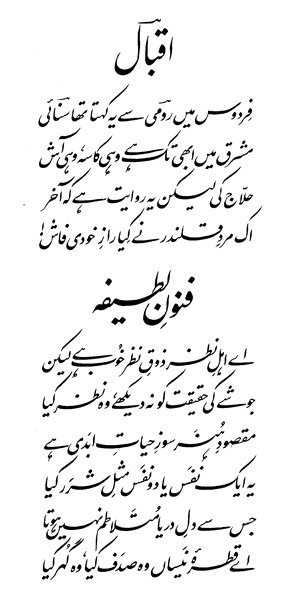 اقبالؔ
فِردوس میں رومیؔ سے یہ کہتا تھا سنائیؔ
مشرق میں ابھی تک ہے وہی کاسہ وہی آش
حلّاج کی لیکن یہ روایت ہے کہ آخر
اک مردِ قلندر نے کِیا رازِ خودی فاش!
فنونِ لطیفہ
اے اہلِ نظر ذوقِ نظر خُوب ہے لیکن
جو شے کی حقیقت کو نہ دیکھے وہ نظر کیا
مقصودِ ہُنر سوزِ حیاتِ ابدی ہے
یہ ایک نفَس یا دو نفَس مثلِ شرَر کیا
جس سے دلِ دریا مُتلاطم نہیں ہوتا
اے قطرۂ نَیساں وہ صدَف کیا وہ گُہر کیا